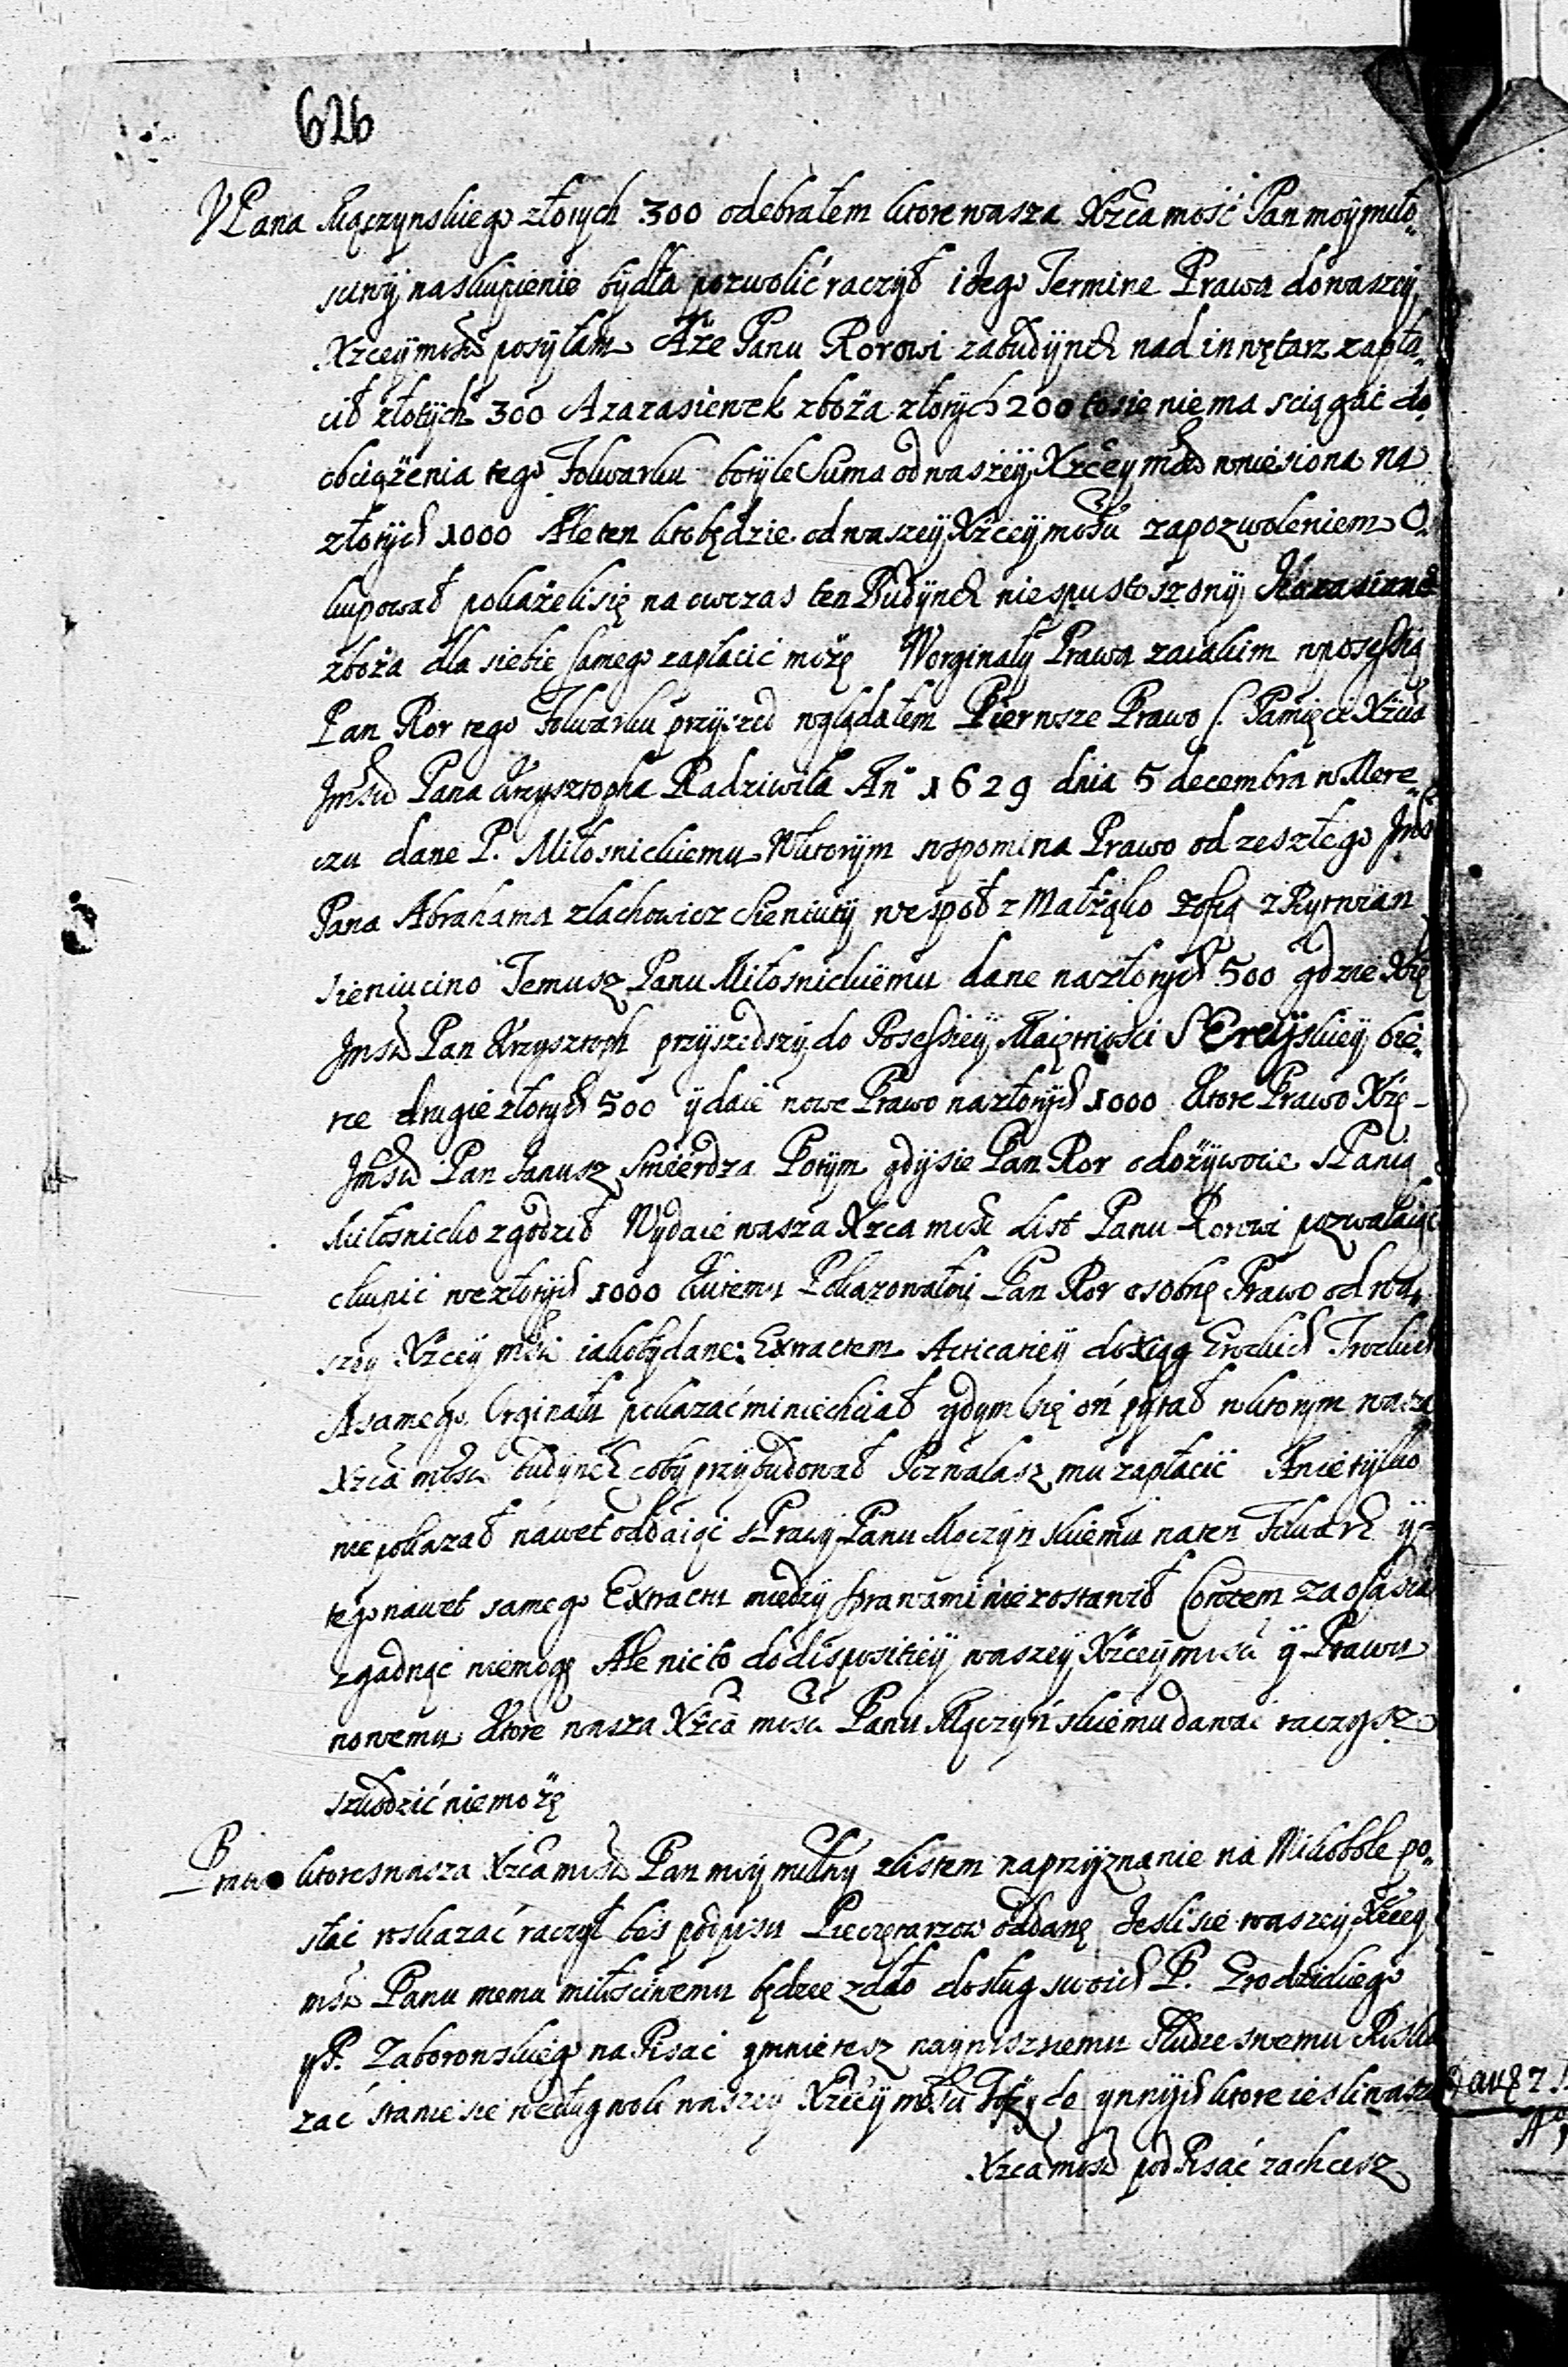 626
V Pana Mączynskiego złotych 300 odebrałem ktore wasza Xżca mość Pan moy miło„
sciwy na skupienie bydła pozwolić raczył i Jego Termine Prawa do waszey
Xżcey mości posyłam Aże Panu Rorowi za budynek nad inwętarz zapła„
cił złotych 300 A za zasiewek zboża złotych 200 to sie nie ma sciągać do
obciążenia tego Folwarku bo tyle Suma od waszey Xżcey mści wniesiona na
złotych 1000 Ale ten kto będzie od waszey Xżcey mości za pozwoleniem O„
kupował pokażeli się na owczas ten Budynek nie spustoszony
zboża dla siebie samego zapłacić może W orginały Prawa za iakim w posessią
Pan Ror tego Folwarku przyszed wglądałem Pierwsze Prawo s. Pamięci Xżcia
Jmści Pana Krzysztopha Radziwiła An° 1629 dnia 5 decembra w Mere„
czu dane P. Miłosnickiemu W ktorym wspomina Prawo od zeszłego Jmści
Pana Abrahama zlachowicz Sieniuty wespoł z Małżąko Zofią z Rytwian
sieniucino Temusz Panu Miłosnickiemu dane na złotych 500 gdzie Xżę
Jmść Pan Krzysztoph przyszedszy do Posessiey Maiętności SEreyskiey bie„
rze drugie złotych 500 y daie nowe Prawo na złotych 1000 Ktore Prawo Xżę
Jmść Pan Janusz Stwierdza Potym gdy sie Pan Ror o dożywocie s Panią
Miłosnicko zgodził Wydaie wasza Xżca mość list Panu Rorowi pozwalaiąc
okupić we złotych 1000 Ku temu Pokazował mi Pan Ror osobne Prawo od wa„
szey Xżcey mści iakoby dane: Extractem Acticatiey do xiąg Grodzkich Trockich
A samego Orginału pokazać mi niechciał gdym się oń pytał w ktorym wasza
Xżca mość budynek coby przybudował Pozwalasz mu zapłacić A nie tylko
nie pokazał nawet oddaiąc sPrawy Panu Mączynskiemu na ten Folwark y
tego nawet samego Extractu miedzy sprawami nie zostawił Co potem za
zgadnąć niemogę Ale nic to do dispositiey waszey Xżcey mości y Prawu
nowemu Ktore wasza Xżca mość Panu Mączyńskiemu dawać raczysz
szkodzić niemożę
Prawo ktores wasza Xżca mość Pan moy miłwy z listem na przyznanie na Mikobole po„
słać roskazać raczył bes podpisu Pieczętarzow oddanę Jesli sie waszey Xżcey
mści Panu memu miłościwemu będzie zdało do sług swoich P. Grodzickiego
y P. Zaborowskiego na Pisać y mnie tesz nayniszszemu Słudze swemu Roska
zać stanie sie według woli waszey Xżcey mości Toż y do ynnych ktore iesli wasza
Xżca mość podPisać zachcesz